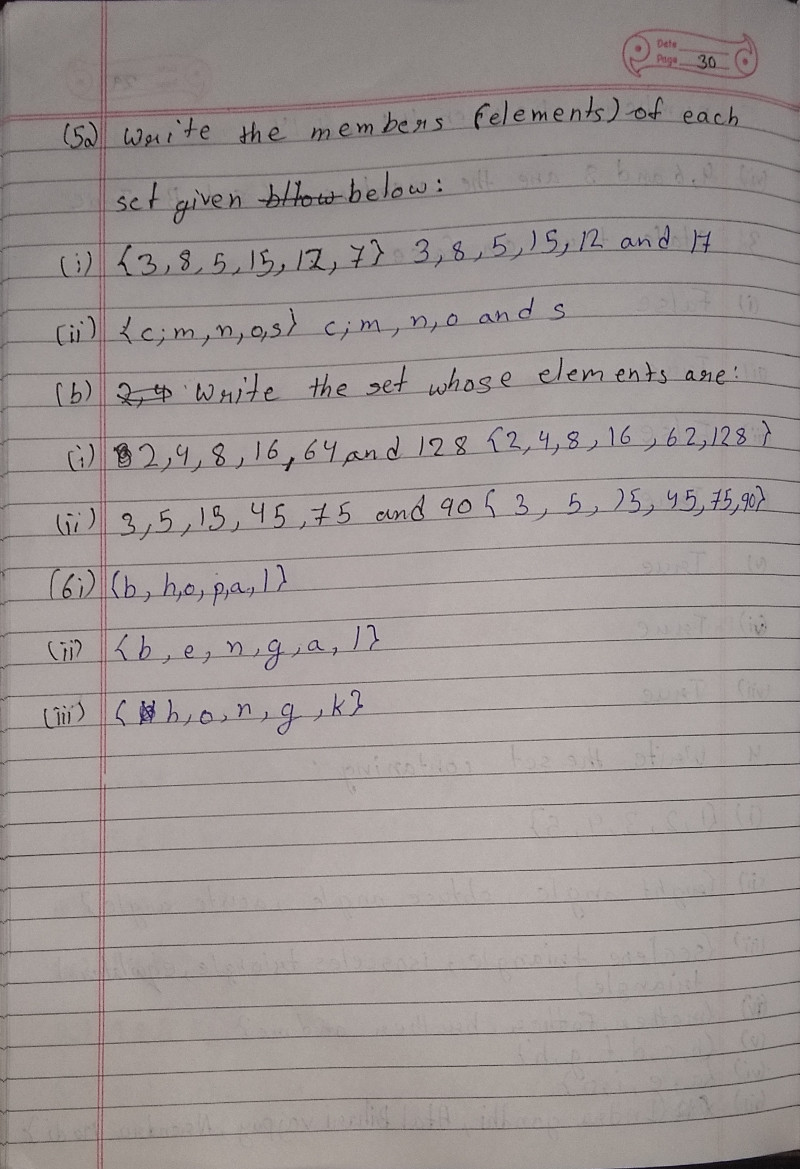 Date
Page 30
(5a) Write the members (elements) of each
set given bllow below:
(i) {3, 8, 5, 15, 12, 7} 3, 8, 5, 15, 12 and 17
(ii) {c; m, n, o, s} c; m, n, o and s
(b) 2, 4 Write the set whose elements are:
(i) 2, 4, 8, 16, 64, and 128 {2, 4, 8, 16, 62, 128}
(ii) 3, 5, 15, 45, 75 and 90 { 3, 5, 15, 45, 75, 90}
(6i) {b, h, o, p, a, l}
(ii) {b, e, n, g, a, l}
(iii) { h, o, n, g, k}